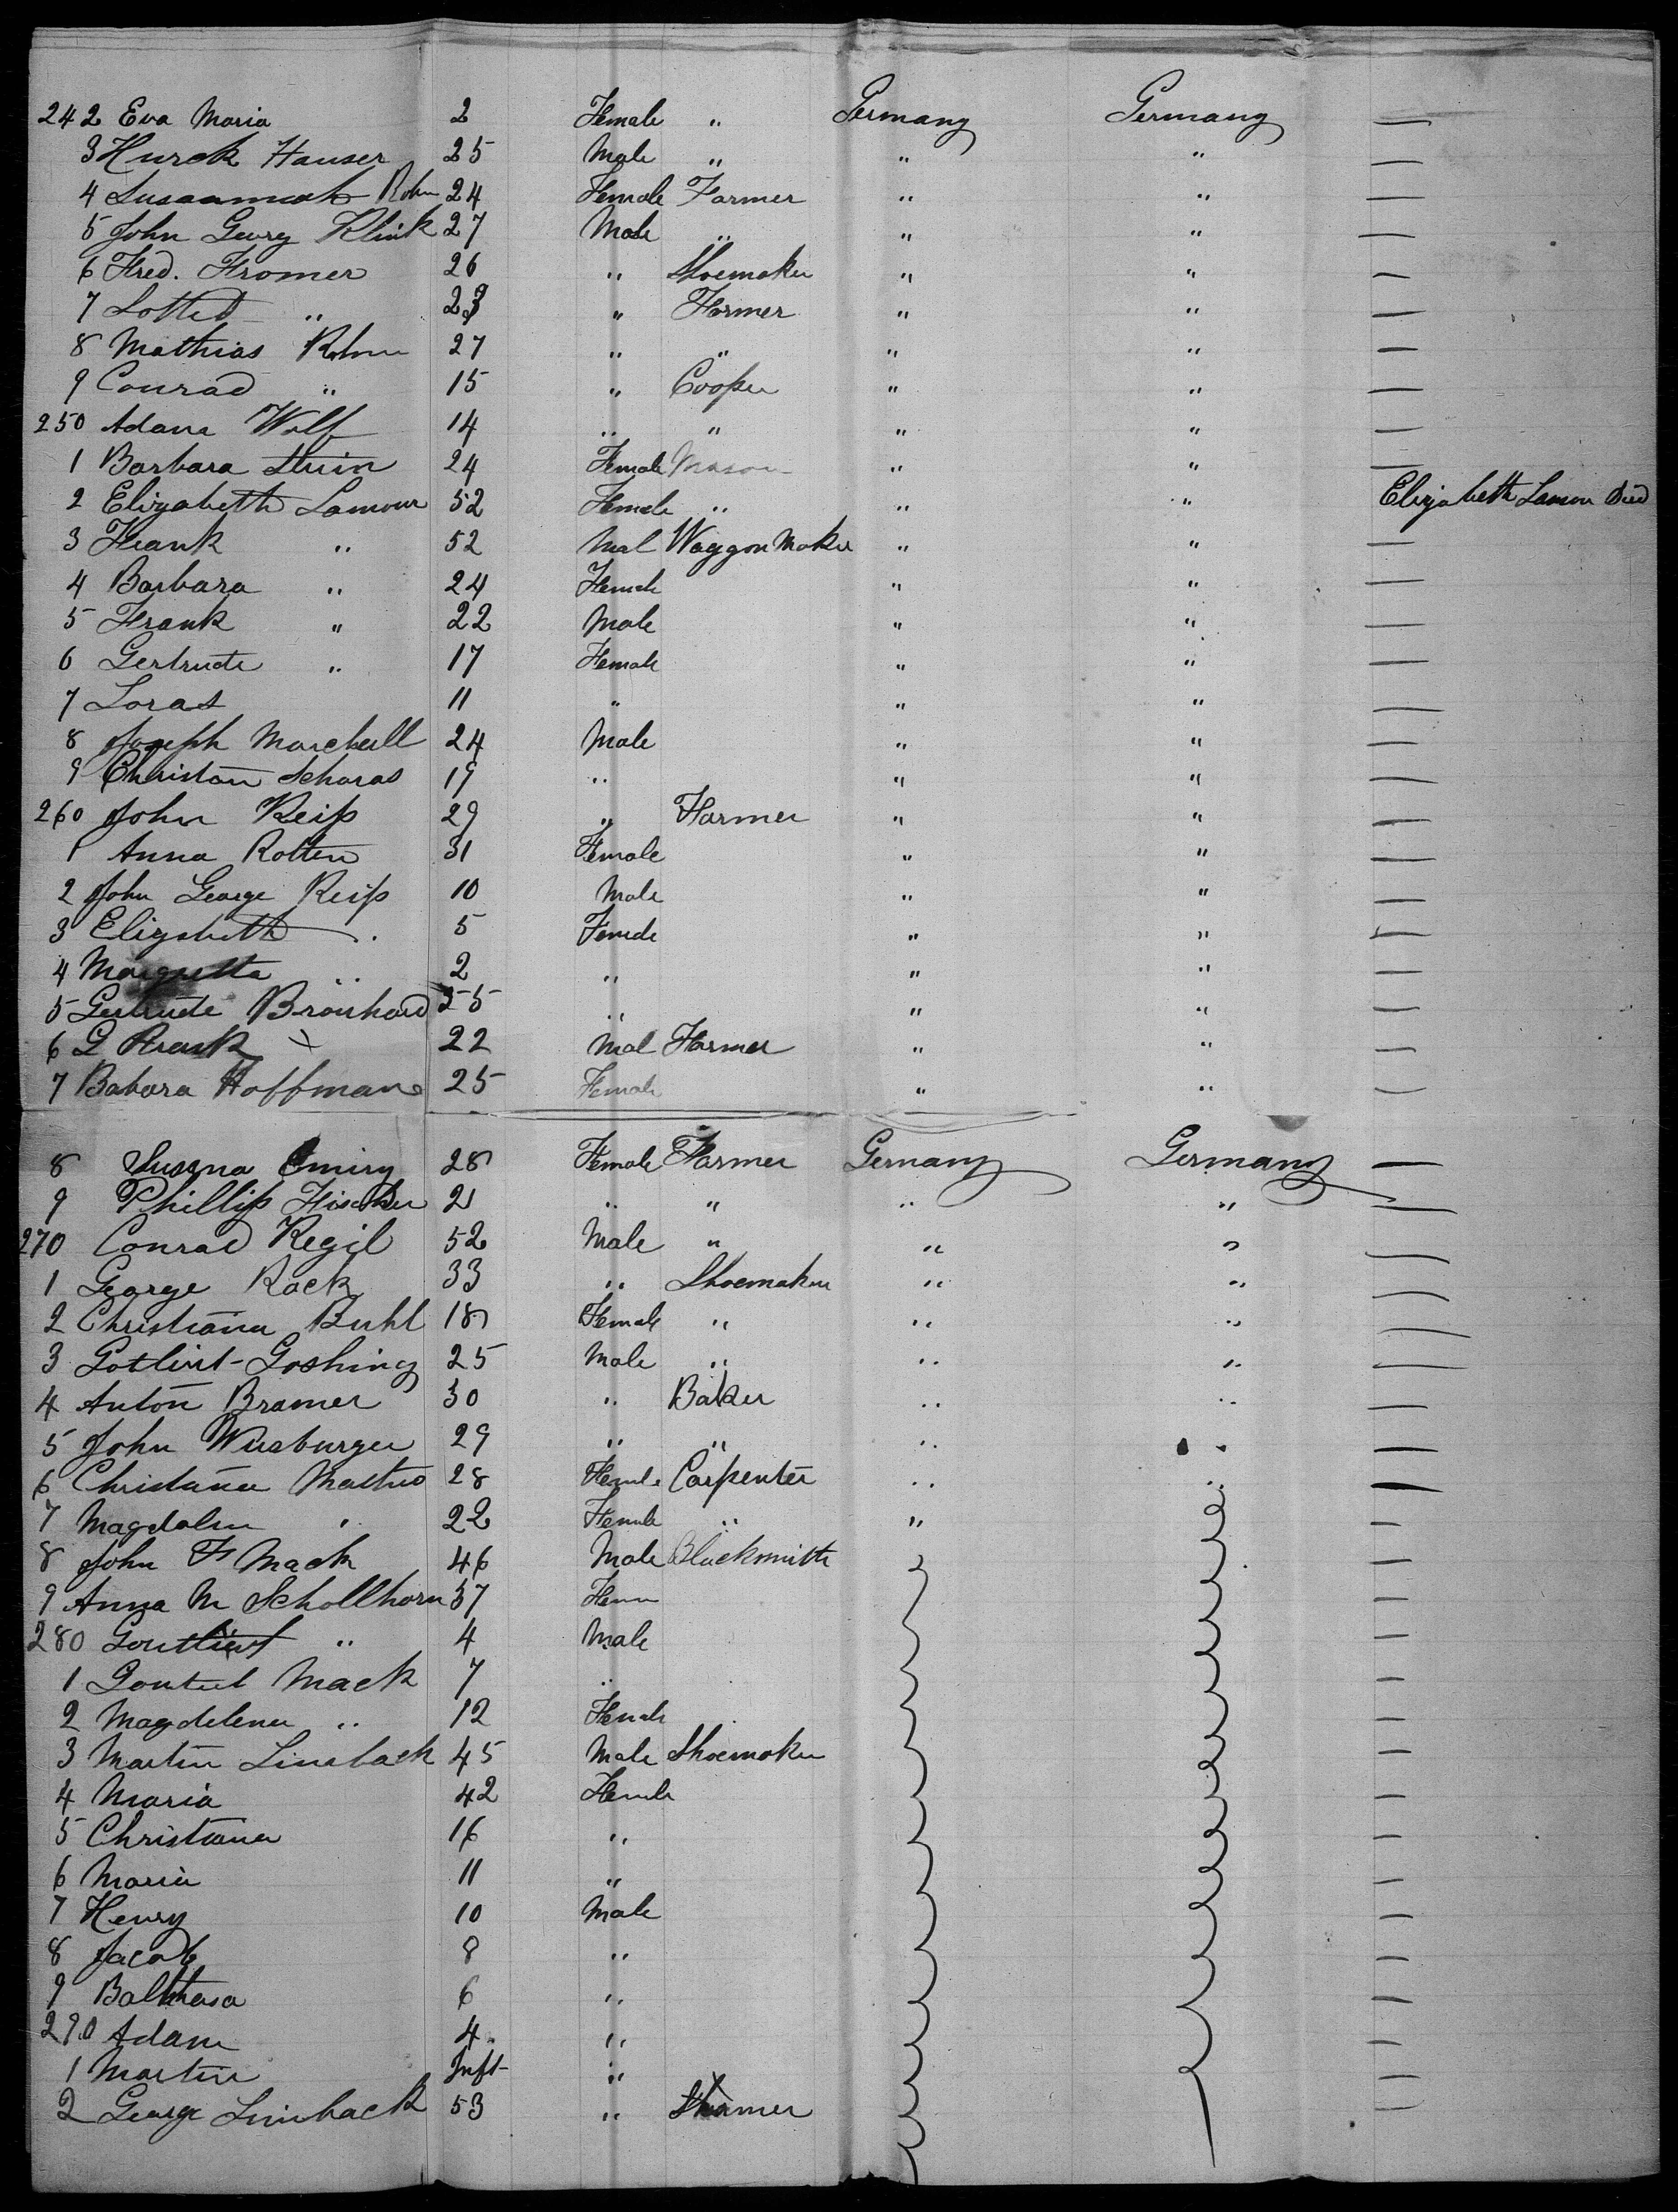 242 Eva Maria 2 Female " Germany Germany —
3 Hurck Hauser 25 Male " " " —
4 Susannah Rohm 24 Female Farmer " " —
5 John Georg Klink 27 Male " " " —
6 Fred. Fromer 26 " Shoemaker " " —
7 Lotted " 23 " Farmer " " —
8 Mathias Rohm 27 " " " " —
9 Conrad " 15 " Cooper " " —
250 Adam Wolf 14 " " " " —
1 Barbara Stuin 24 Female Mason " " —
2 Elizabeth Lamour 52 Female " " " Elizabeth Lamou Died
3 Frank " 52 Mal Waggon Maker " " —
4 Barbara " 24 Female " " —
5 Frank " 22 Male " " —
6 Gertrude " 17 Female " " —
7 Loras 11 " " " —
8 Joseph Marchall 24 Male " " —
9 Christan Scharas 19 " " " —
260 John Reiß 29 " Farmer " " —
1 Anna Rotten 31 Female " " —
2 John George Reiß 10 Male " " —
3 Elizabeth " 5 Female " " —
4 Margretta " 2 " " " —
5 Gertrude Bronhard 55 " " " —
6 G Frank × 22 Mal Farmer " " —
7 Babara Hoffman 25 Female " " —
8 Susana Emiry 28 Female Farmer Germany Germany —
9 Phillip Fischer 21 " " " " —
270 Conrad Regil 52 Male " " " —
1 George Rock 33 " Shoemaker " " —
2 Christiana Buhl 18 Female " " " —
3 Gotlint-Goshing 25 Male " " " —
4 Anton Bramer 30 " Baker " " —
5 John Wursburger 29 " " " " —
6 Christiana Mathis 28 Female Carpenter " " —
7 Magdalen " 22 Female " " " —
8 John F Mack 46 Male Blacksmith " " —
9 Anna M Schollhorn 37 Fem " " —
280 Goutlieut " 4 Male " " —
1 Goutleb Mack 7 " " " —
2 Magdelena " 12 Female " " —
3 Martin Linsback 45 Male Shoemaker " " —
4 Maria 42 Female " " —
5 Christiana 16 " " " —
6 Maria 11 " " " —
7 Henry 10 Male " " —
8 Jacob 8 " " " —
9 Balthasa 6 " " " —
290 Adam 4 " " " —
1 Martin Inft " " " —
2 George Linback 53 " Farmer " " —